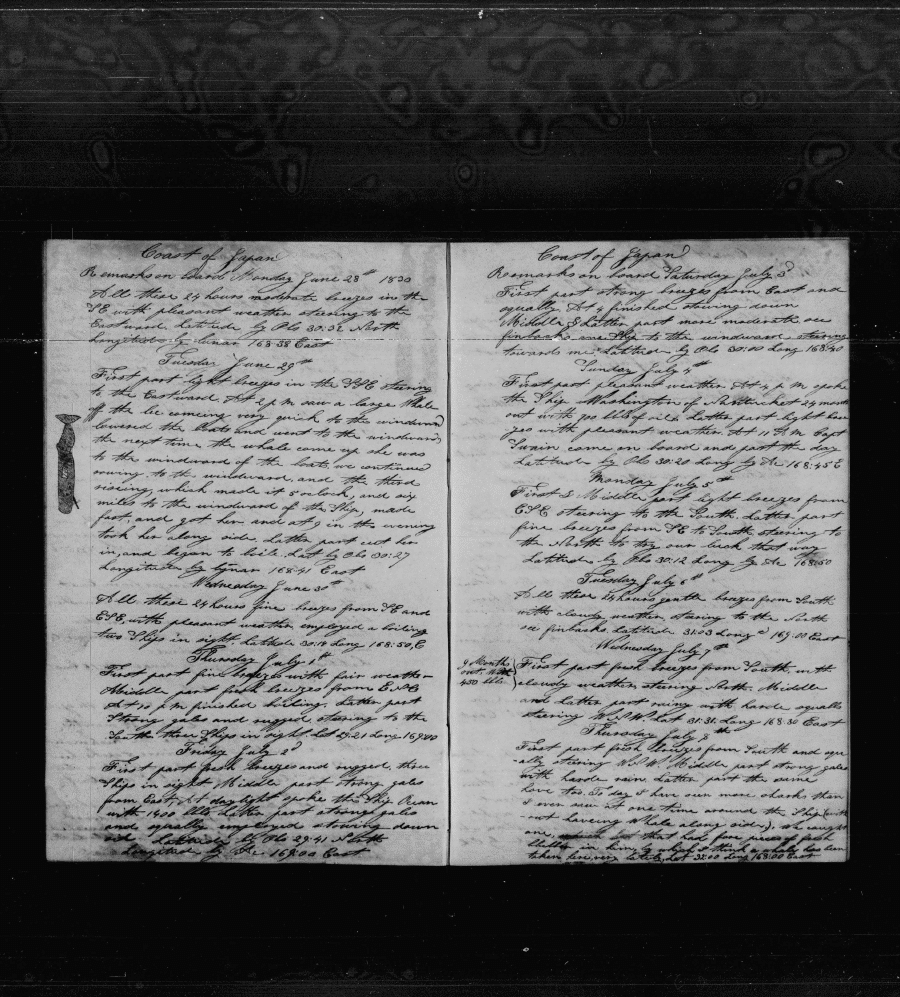 Coast of Japan
Remarks on board Monday June 28th 1830
All these 24 hours moderate breezes in the
SE with pleasant weather steering to the
Eastward. Latitude by Obs 30:32 North
Longitude by lunar 168:38 East
Tuesday June 29th
First part light breezes in the SSE steering
to the Eastward. At 2 p m saw a large Whale
off the lee comeing very quick to the windward
lowered the boats and went to the windward
the next time the whale came up she was
to the windward of the boats, we continued
rowing to the windward, and the third
riseing, which made it 5 oclock, and six
miles to the windward of the Ship, made
fast, and got her and at 9 in the evening
took her along side. Latter part cut her
in, and began to boile. Lat by Obs 30:27
Longitude by lynar 168:41 East
Wednesday June 30th
All these 24 hours fine breezes from SE and
ESE, with pleasant weather employed a boiling
two Ships in sight. Latitude 30:18 Long 168:50 E
Thursday July 1st
First part fine breezes with fair weather
Middle part fresh breezes from ENE
At 10 p m finished boiling. Latter part
Strong gales and rugged, steering to the
South three Ships in sight Lat 29:21 Long 169:00
Friday July 2d
First part fresh breezes and rugged, three
Ships in sight. Middle part strong gales
from East, At daylight spoke the Ship Ocean
with 1400 bbls Latter part strong gales
and squally employed stowing down
Latitude by Obs 29:41 North
Longitude by Ac 169:00 East
Coast of Japan
Remarks on board Saturday July 3d
First part strong breezes from East and
squally. At 4 finished stowing down
Middle & Latter part more moderate see
finbacks one Ship to the windward steering
towards me. Latitude by Obs 30:00 Long 168:40
Sunday July 4th
First part pleasant weather. At 4 p m spoke
the Ship Washington of Nantucket 24 months
out with 900 bbls of oil. Latter part light bree
zes with pleasant weather. At 11 A M Capt
Swain came on board and past the day
Latitude by Obs 30:20 Long by Ac 168:45 E
Monday July 5th
First & Middle part light breezes from
ESE steering to the South. Latter part
fine breezes from SE to South, steering to
the North to try our luck that way
Latitude by Obs 30:12 Long by Ac 168:50
Tuesday July 6th
All these 24 hours gentle breezes from South
with cloudy weather, stering to the North
see finbacks. Latitude 31:03 Long 169:00 East
Wednesday July 7th
9 Months
out with
450 bbls
First part fresh breezes from South, with
cloudy weather, steering North. Middle
and Latter part rainy with harde squalls
steering WSW Lat 31:31 Long 168:30 East
Thursday July 8th
First part fresh breezes from South and squ-
-ally steering WSW Middle part strong gales
with harde rain. Latter part the same
love too. To day I have seen more sharks than
I ever saw at one time around the Ship (with
-out haveing Whale along side), we caught
one, that had five pieces of
blubber in him, by which I think a whale has been
taken here very lately, Lat 31:00 Long 168:00 East